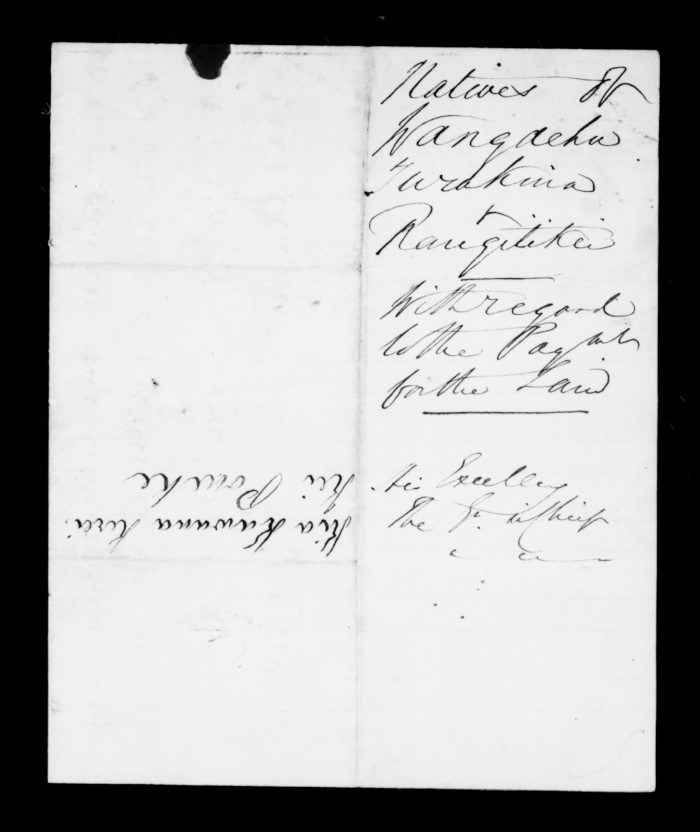 Natives of
Wangaehu
Turakina
&
Rangitikei
With regard
to the Paymt
for the Land
His Excellcy
The Gr. in Chief
Kia Kawana Kerei
Kei Poneke